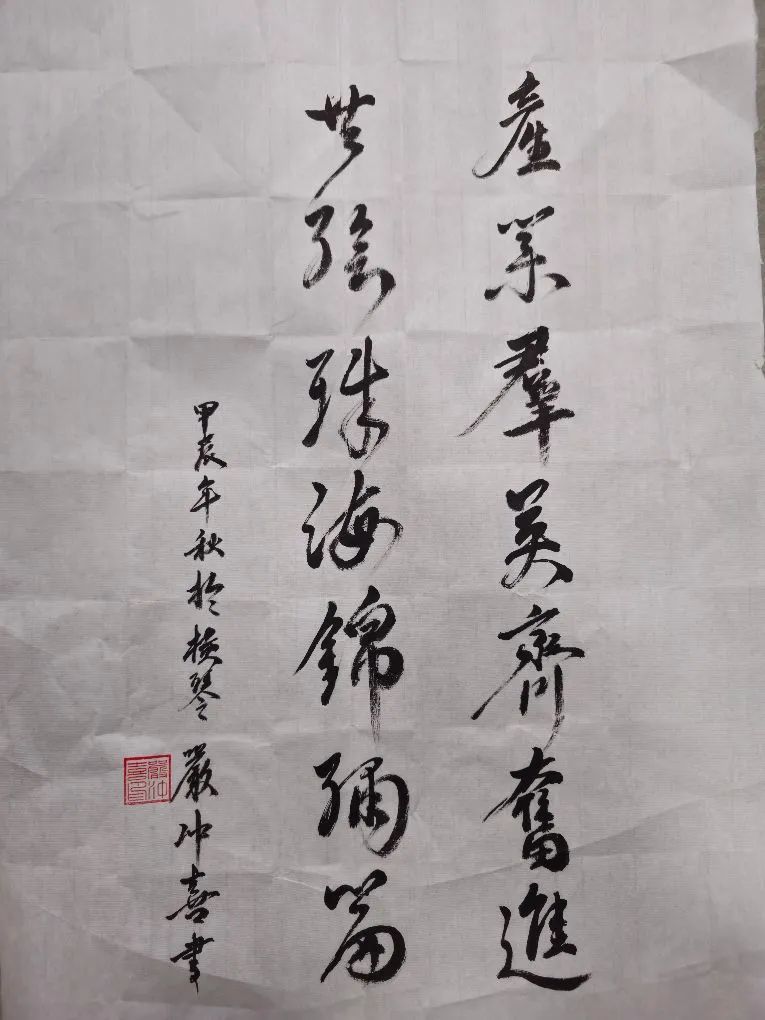 產業羣英齊奮進
共繪珠海錦繡篇
甲辰年秋於橫琴 嚴冲喜書
嚴冲喜印